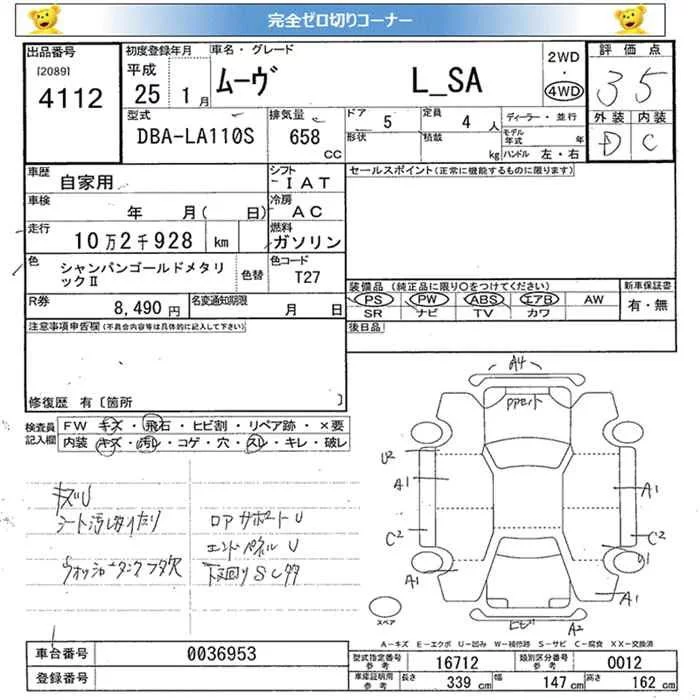 完全ゼロ切りコーナー
出品番号 初度登録年月 車名・グレード 2WD・4WD 評価点
[2089] 4112 平成 25 1月 ムーヴ L_SA 3 5
型式 排気量 ドア 5 定員 4 人 ディーラー・並行 外装 内装
DBA-LA110S 658 CC 形状 積載 kg モデル年式 年 ハンドル 左・右 D C
車歴 自家用 シフト IAT セールスポイント(正常に機能するものに限ります)
車検 年 月( 日) 冷房 AC
走行 10万2千928 km 燃料 ガソリン
色 シャンパンゴールドメタリックⅡ 色替 色コード T27
装備品 (純正品に限り○をつけてください) 新車保証書
R券 8,490円 名変通知期限 月 日 PS PW ABS エアB AW 有・無
SR ナビ TV カワ
注意事項申告欄(不具合内容等は具体的に記入して下さい) 後日品
修復歴 有〔箇所 〕
検査員記入欄 FW キズ・飛石・ヒビ割・リペア跡・×要
内装 キズ・汚レ・コゲ・穴・スレ・キレ・破レ
A4
U2
A1 A1
C2 C2
A1 A1
キズU
シート汚レ
ロアサポートU
エンドパネルU
ウォッシャータンクフタ欠
下回りSCサ
スペア
ヒビ A2
A-キズ E-エクボ U-凹み W-補修跡 S-サビ C-腐食 XX-交換済
車台番号 0036953 型式指定番号 参考 16712 類別区分番号 参考 0012
登録番号 車庫証明用 参考 長さ 339 cm 幅 147 cm 高さ 162 cm